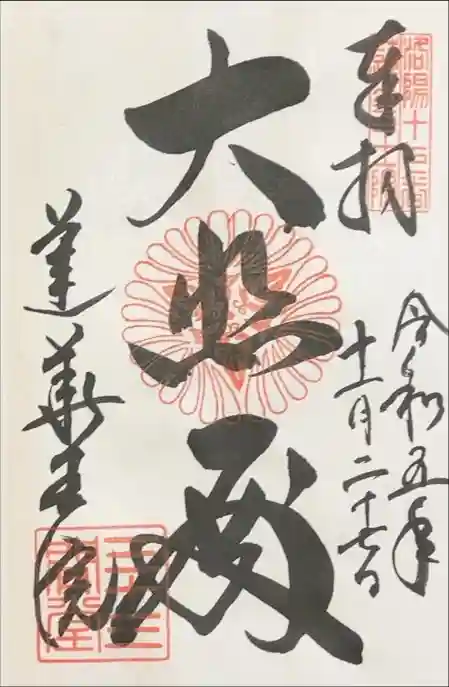 奉拝
洛陽十七番
令和五年
十一月二十七日
大悲殿
蓮華王院